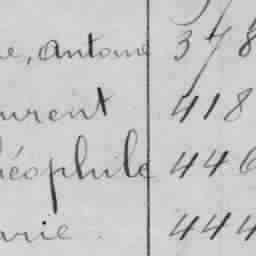 e, Antoine 378
urent 418
éophile 446
arie 444